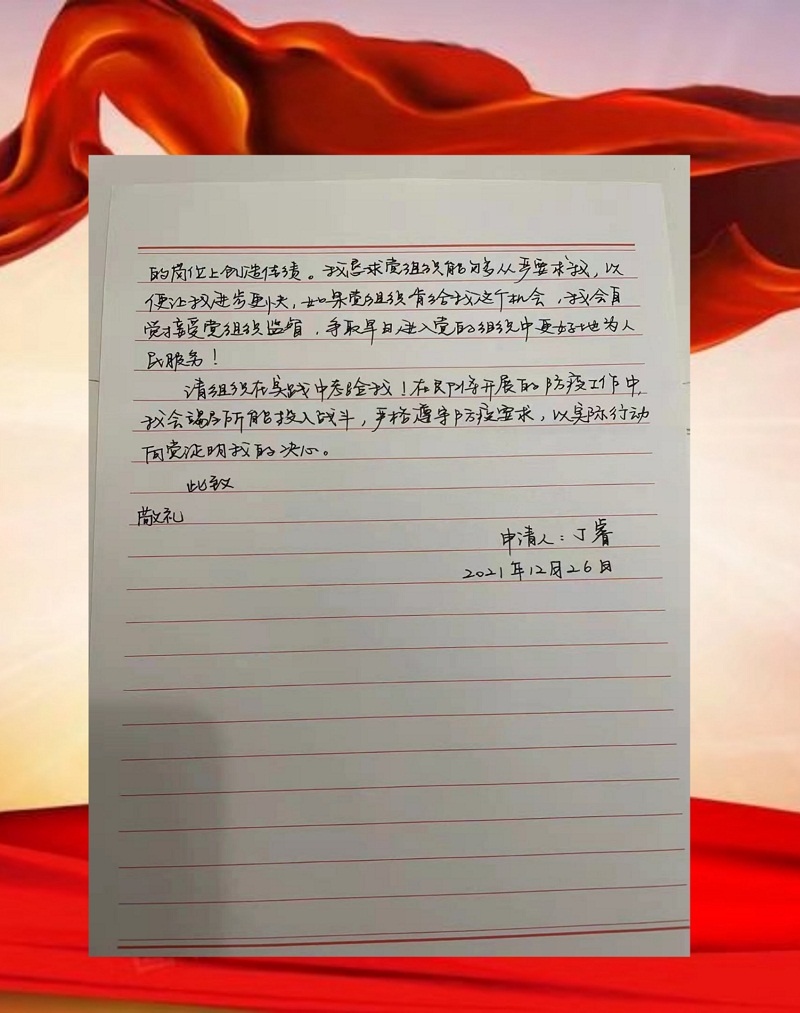 的岗位上创造佳绩。我恳求党组织能够从严要求我，以
便让我进步更快，如果党组织肯给我这个机会，我会自
觉接受党组织监督，争取早日进入党的组织中更好地为人
民服务！
请组织在实战中考验我！在即将开展的防疫工作中，
我会竭尽所能投入战斗，严格遵守防疫要求，以实际行动
向党证明我的决心。
此致
敬礼
申请人：丁睿
2021年12月26日